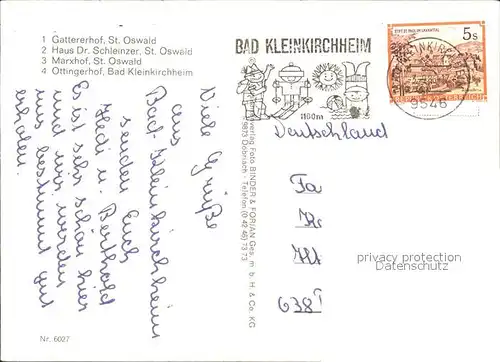 1 Gattererhof, St. Oswald
2 Haus Dr. Schleinzer, St. Oswald
3 Marxhof, St. Oswald
4 Ottingerhof, Bad Kleinkirchheim
Viele Grüße
aus
Bad-Kleinkirchheim
senden Euch
Hedi u. Berthold
Es ist sehr schön hier
wir werden
uns bestimmt gut
erholen.
Nr. 6027
Verlag Foto BINDER & FORIAN Ges. m. b. H. & Co. KG
9873 Döbriach - Telefon (0 42 46) 73 73
BAD KLEINKIRCHHEIM
1100m
5s
9546
Deutschland
Fa
638
privacy protection
Datenschutz